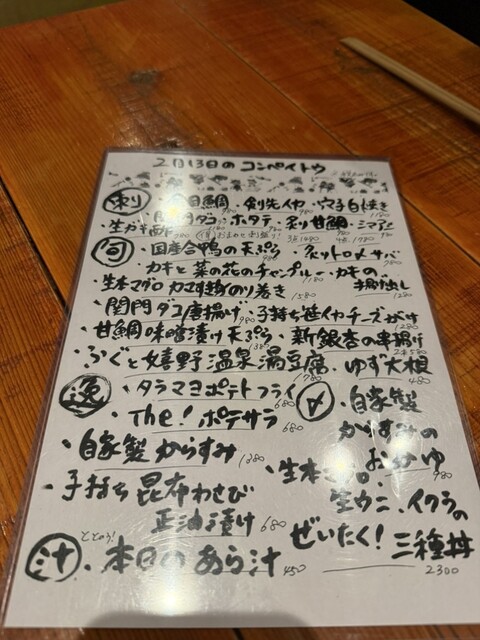 2月13日のコンペイトウ
刺 目鯛 980 ・剣先イカ 980 ・穴子白焼き 1180
関門タコ ・ホタテ ・炙り甘鯛 ・シマアジ
・生ガキ
3点1480 4点1780
旬 ・国産合鴨の天ぷら 980 ・炙りトロメサバ 980
・カキと菜の花のチャンプルー 1180 ・カキの
・生本マグロカマすき身のり巻き 1580
・関門ダコ唐揚げ 980 ・子持ち笹イカチーズがけ 1280
・甘鯛味噌漬け天ぷら ・新銀杏の串揚げ 2本580
・ふぐと嬉野温泉湯豆腐 1780 ・ゆず大根 480
逸 ・タラマヨポテトフライ 680
・The!ポテサラ 680
・自家製からすみ 1280
・子持ち昆布わさび
正油漬け 680
〆 ・自家製
からすみの
おかゆ 980
・生本
生ウニ、イクラの
ぜいたく!三種丼
2300
汁 ・本日のあら汁 450